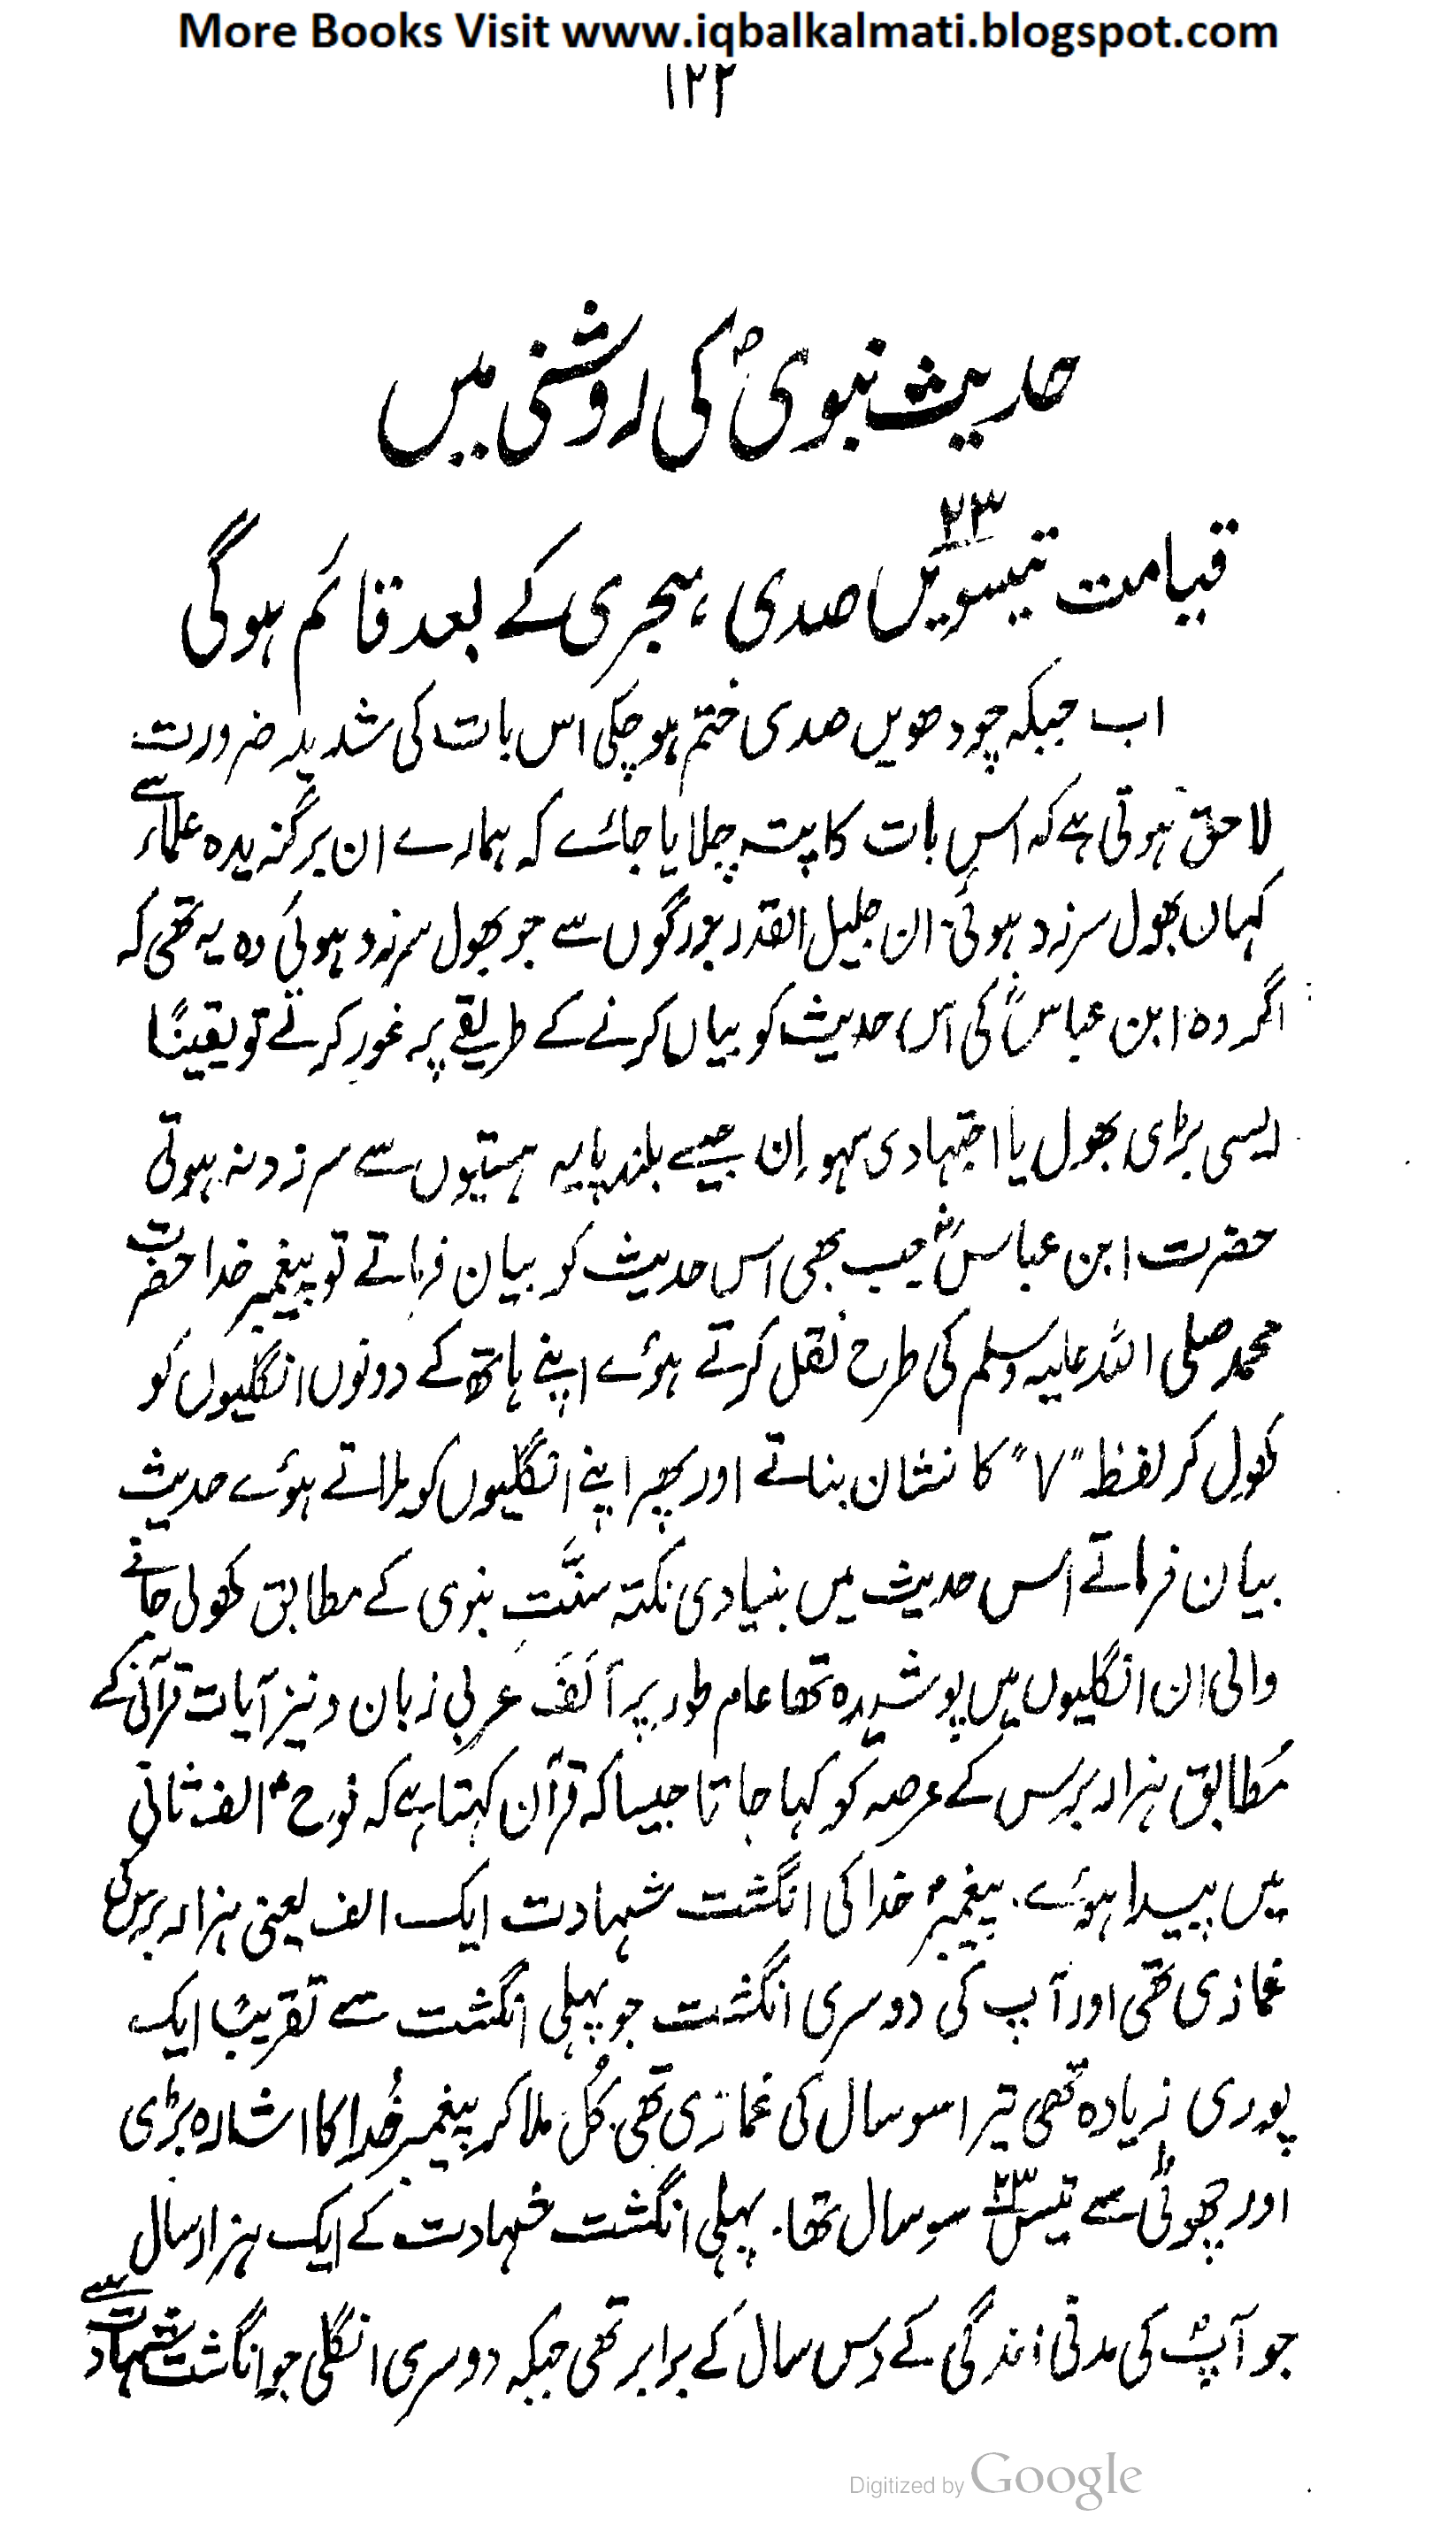 More Books Visit www.iqbalkalmati.blogspot.com
۱۲۲
حدیث نبویؐ کی روشنی میں
قیامت تیسویں ۲۳ صدی ہجری کے بعد قائم ہوگی
اب جبکہ چودھویں صدی ختم ہو چکی اس بات کی شدید ضرورت
لاحق ہوتی ہے کہ اس بات کا پتہ چلایا جائے کہ ہمارے ان برگزیدہ علماء سے
کہاں بھول سرزد ہوئی۔ ان جلیل القدر بزرگوں سے جو بھول سرزد ہوئی وہ یہ تھی کہ
اگر وہ ابن عباسؓ کی اس حدیث کو بیاں کرنے کے طریقے پر غور کرتے تو یقیناً
ایسی بڑی بھول یا اجتہادی سہو اِن جیسے بلند پایہ ہستیوں سے سرزد نہ ہوتی
حضرت ابن عباسؓ جب بھی اس حدیث کو بیان فرماتے تو پیغمبر خدا حضرت
محمد صلی اللہ علیہ وسلم کی طرح نقل کرتے ہوئے اپنے ہاتھ کے دونوں انگلیوں کو
کھول کر لفظ "۷" کا نشان بناتے اور پھر اپنے انگلیوں کو ہلاتے ہوئے حدیث
بیان فرماتے اس حدیث میں بنیادی نکتہ سنّتِ نبوی کے مطابق کھولی جانے
والی ان انگلیوں میں پوشیدہ تھا عام طور پر اَلَفَ عربی زبان و نیز آیات قرآنی کے
مُطابق ہزار برس کے عرصہ کو کہا جاتا جیسا کہ قرآن کہتا ہے کہ نوحؑ الف ثانی
میں پیدا ہوئے۔ پیغمبرؐ خدا کی انگشت شہادت ایک الف یعنی ہزار برس کی
غمازی تھی اور آپ کی دوسری انگشت جو پہلی انگشت سے تقریباً ایک
پوری زیادہ تھی تیرا سو سال کی غمازی تھی۔ کُل ملا کر پیغمبر خُدا کا اشارہ بڑی
اور چھوٹی سے تیئس ۲۳ سو سال تھا۔ پہلی انگشت شہادت کے ایک ہزار سال
جو آپؐ کی مدنی زندگی کے دس سال کے برابر تھی جبکہ دوسری انگلی جو انگشت شہادت سے
Digitized by Google